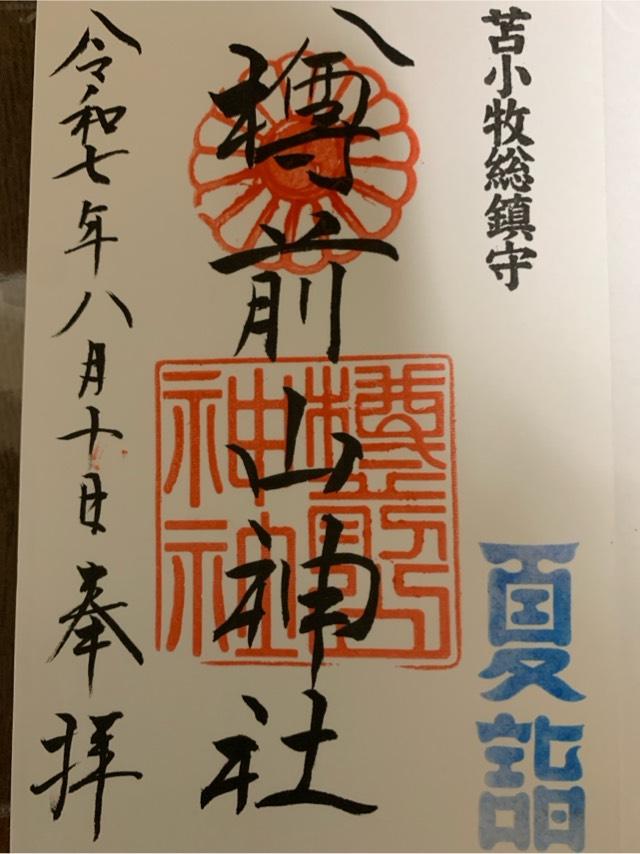 苫小牧総鎮守
夏詣
樽前山神社
樽前山神社
令和七年八月十日奉拝